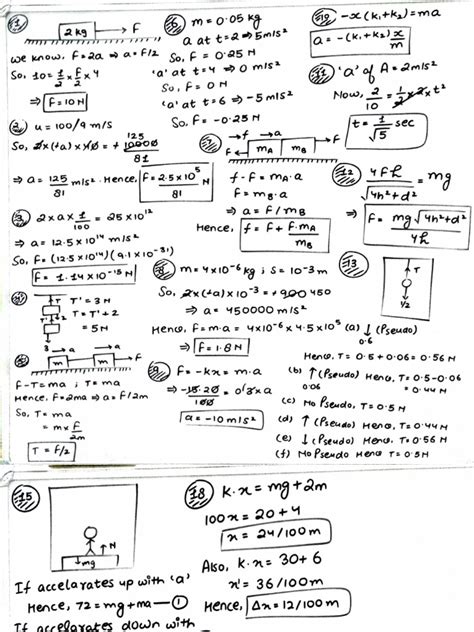 1
2 kg → F
we know, F = 2a ⇒ a = F/2
So, 10 = 1/2 × F/2 × 4
⇒ F = 10 N
2 u = 100/9 m/s
⇒ a = 125/81 m/s². Hence, F = 2.5×10⁵/81 N
3 2 × a × 1/100 = 25×10¹²
⇒ a = 12.5×10¹⁴ m/s²
So, F = (12.5×10¹⁴)(9.1×10⁻³¹)
⇒ F = 1.14×10⁻¹⁵ N
T' = 3N
T = T' + 2
= 5N
m → m → F
F-T = ma ; T = ma
Hence, F = 2ma ⇒ a = F/2m
So, T = ma
= m × F/2m
T = F/2
6 m = 0.05 kg
a at t = 2 ⇒ 5 m/s²
So, F = 0.25 N
'a' at t = 4 ⇒ 0 m/s²
So, F = 0
'a' at t = 6 ⇒ -5 m/s²
So, F = -0.25 N
→f →a
mA mB → F
f - F = mA.a
F = mB.a
⇒ a = F/mB
Hence, f = F + F.mA/mB
8 m = 4×10⁻⁶ kg ; s = 10⁻³ m
⇒ a = 450000 m/s²
Hence, F = m.a = 4×10⁻⁶ × 4.5×10⁵
⇒ F = 1.8 N
9 F = -kx = m.a
a = -10 m/s²
10 -x(k₁+k₂) = ma
a = -(k₁+k₂) x/m
11 'a' of A = 2 m/s²
t = 1/√5 sec
12 4Fh/√(4h²+d²) = mg
⇒ F = mg√(4h²+d²)/4h
13
T
(a) ↓ (Pseudo)
Hence, T = 0.5 + 0.06 = 0.56 N
(b) ↑ (Pseudo) Hence, T = 0.5-0.06
0.06 = 0.44 N
(c) No Pseudo, T = 0.5 N
(d) ↑ (Pseudo) Hence, T = 0.44 N
(e) ↓ (Pseudo) Hence, T = 0.56 N
(f) No Pseudo Hence T = 0.5 N
15
↑N
↓mg
If accelarates up with 'a'
Hence, 72 = mg + ma — ①
If accelarates down with
18 k.x = mg + 2m
100x = 20 + 4
x = 24/100 m
Also, k.x = 30 + 6
x' = 36/100 m
Hence, Δx = 12/100 m